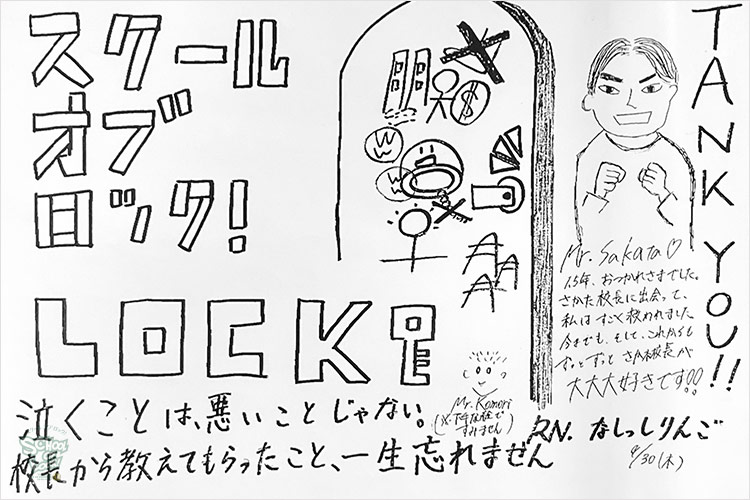 スクール
オブ
ロック!
LOCK
W
W
$
A
A A
A
TANK YOU!!
Mr. Sakata♡
15年、おつかれさまでした。
さかた校長に出会って、
私は すごく 救われました
今までも、そして、これからも
ずっと ずっと さかた校長が
大大大好きです!!
Mr. Komori
(※下手な絵で
すみません)
泣くことは、悪いことじゃない。
校長から教えてもらったこと、一生忘れません
RN. なしっしりんご
9/30(木)